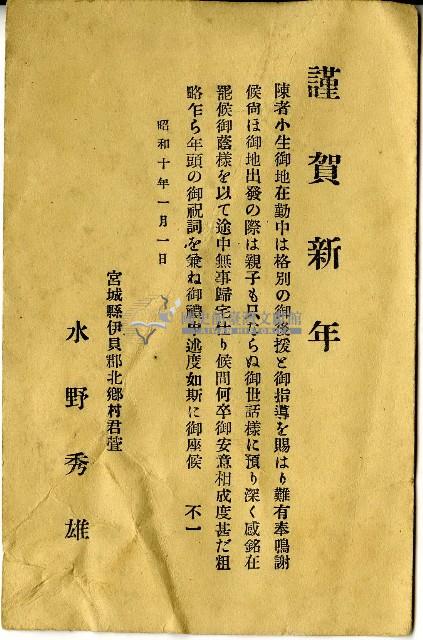 謹賀新年
陳者小生御地在勤中は格別の御後援と御指導を賜はり難有奉鳴謝
候尙ほ御地出發の際は親子も只ならぬ御世話樣に預り深く感銘在
罷候御蔭樣を以て途中無事歸宅仕り候間何卒御安意相成度甚だ粗
略乍ら年頭の御祝詞を兼ね御禮申述度如斯に御座候 不一
昭和十年一月一日
宮城縣伊具郡北鄉村君萱
水野秀雄